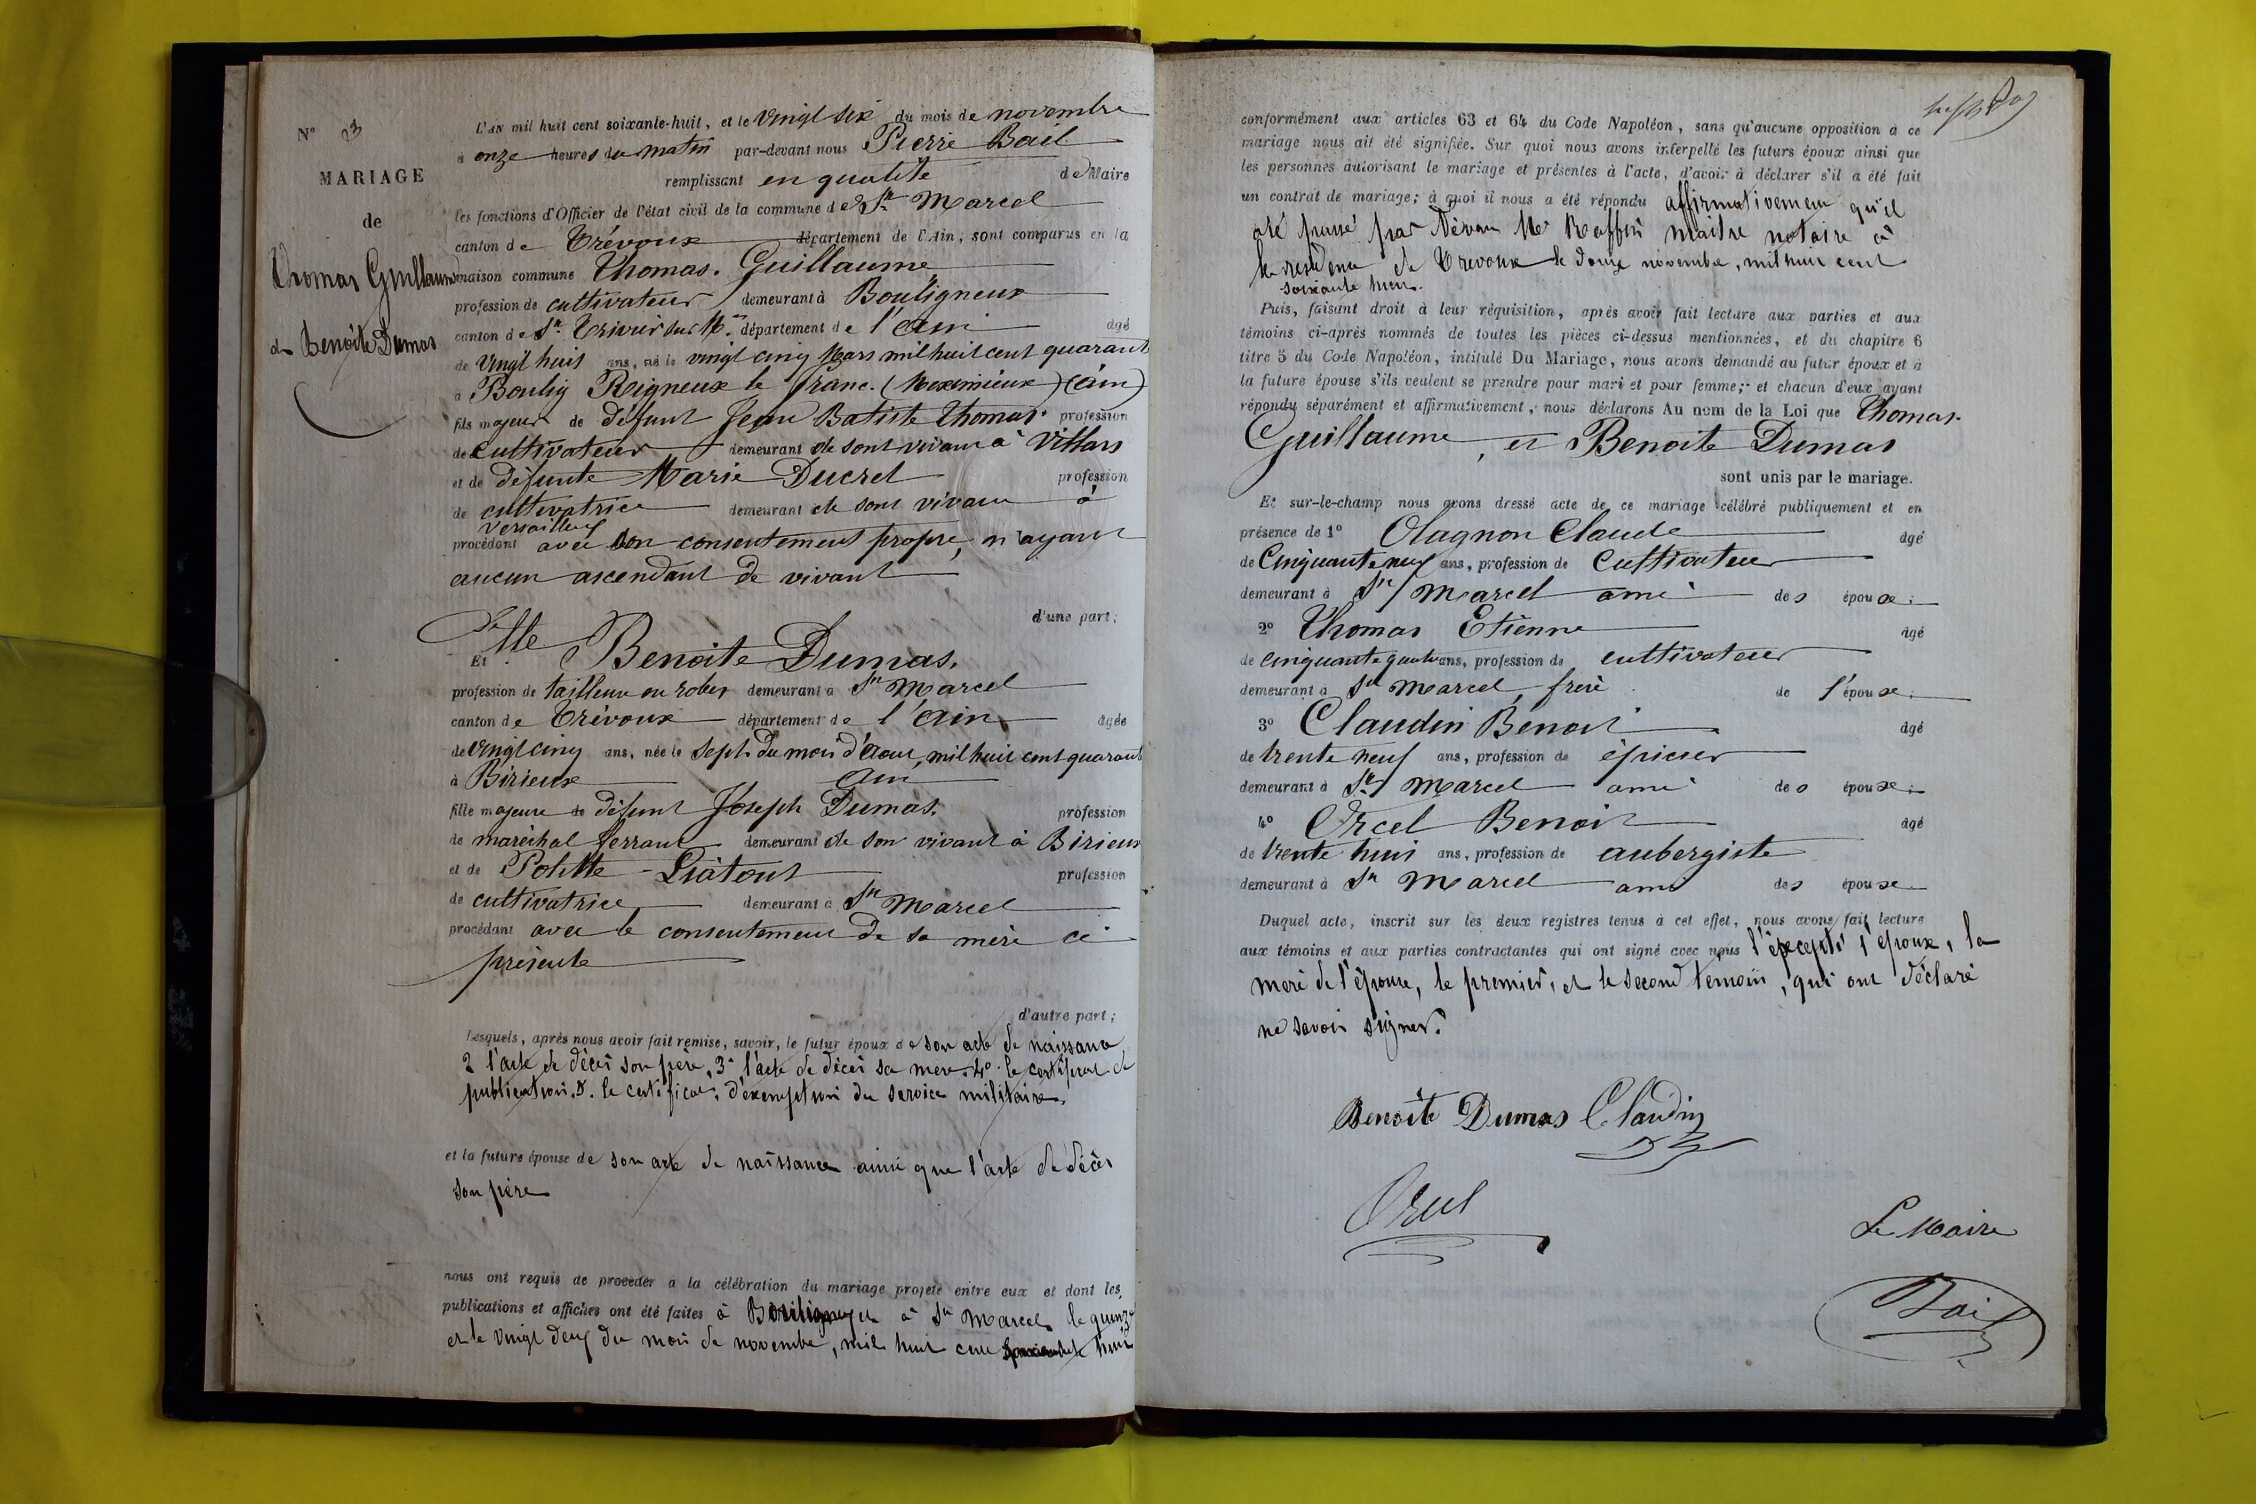 N° 23
MARIAGE
de
Thomas Guillaume
et Benoîte Dumas
L'an mil huit cent soixante-huit, et le vingt six du mois de novembre
à onze heures du matin par-devant nous Pierre Bail
remplissant en qualité de Maire
les fonctions d'Officier de l'état civil de la commune de St Marcel
canton de Trévoux département de l'Ain, sont comparus en la
maison commune Thomas. Guillaume
profession de cultivateur demeurant à Bouligneux
canton de St Trivier sur M. département de l'ain âgé
de vingt huit ans, né le vingt cinq Mars mil huit cent quarante
à Boulig Rigneux le franc. (Meximieux) (ain)
fils majeur de défunt Jean Batiste Thomas. profession
de cultivateur demeurant de sont vivant à Villars
et de défunte Marie Ducret profession
de cultivatrice demeurant de sont vivant à
Versailleux
procédant avec son consentement propre, n'ayant
aucun ascendant de vivant
d'une part;
Et Delle Benoite Dumas.
profession de tailleuse en robes demeurant à St Marcel
canton de Trévoux département de l'ain âgée
de vingt cinq ans, née le sept du mois d'Aout, mil huit cent quarante
à Birieux ain
fille majeure de défunt Joseph Dumas. profession
de maréchal ferrant demeurant de son vivant à Birieux
et de Politte Liâtout profession
de cultivatrice demeurant à St Marcel
procédant avec le consentement de sa mère ci
présente
d'autre part;
Lesquels, après nous avoir fait remise, savoir, le futur époux de son acte de naissance
2 l'acte de décès son père, 3° l'acte de décès sa mere. 4° le certificat de
publication. 5. le certificat d'exemption du service militaire.
et la future épouse de son acte de naissance ainsi que l'acte de décès
son père
nous ont requis de procéder à la célébration du mariage projeté entre eux et dont les
publications et affiches ont été faites à Bouligneux et à St Marcel le quinze
et le vingt deux du mois de novembre, mil huit cent soixante huit
conformément aux articles 63 et 64 du Code Napoléon, sans qu'aucune opposition à ce
mariage nous ait été signifiée. Sur quoi nous avons interpellé les futurs époux ainsi que
les personnes autorisant le mariage et présentes à l'acte, d'avoir à déclarer s'il a été fait
un contrat de mariage; à quoi il nous a été répondu affirmativement qu'il
été passé par dévant Me Raffin maitre notaire à
la residence de Trevoux le douze novembre, mil huit cent
soixante huit.
Puis, faisant droit à leur réquisition, après avoir fait lecture aux parties et aux
témoins ci-après nommés de toutes les pièces ci-dessus mentionnées, et du chapitre 6
titre 5 du Code Napoléon, intitulé Du Mariage, nous avons demandé au futur époux et à
la future épouse s'ils veulent se prendre pour mari et pour femme; et chacun d'eux ayant
répondu séparément et affirmativement, nous déclarons Au nom de la Loi que Thomas.
Guillaume, et Benoite Dumas
sont unis par le mariage.
Et sur-le-champ nous avons dressé acte de ce mariage célébré publiquement et en
présence de 1° Olagnon Claude âgé
de Cinquante neuf ans, profession de Cultivateur
demeurant à St Marcel ami des époux;
2° Thomas Etienne âgé
de cinquante quatre ans, profession de cultivateur
demeurant à St Marcel, frere de l'épouse;
3° Claudin Benoit âgé
de trente neuf ans, profession de épicier
demeurant à St Marcel ami des époux;
4° Orcel Benoit âgé
de trente huit ans, profession de aubergiste
demeurant à St Marcel ami des époux
Duquel acte, inscrit sur les deux registres tenus à cet effet, nous avons fait lecture
aux témoins et aux parties contractantes qui ont signé avec nous l'éxcepté l'époux, la
mere de l'épouse, le premier, et le second témoin, qui ont déclaré
ne savoir signer.
Benoite Dumas Claudin
Orcel
Le Maire
Bail